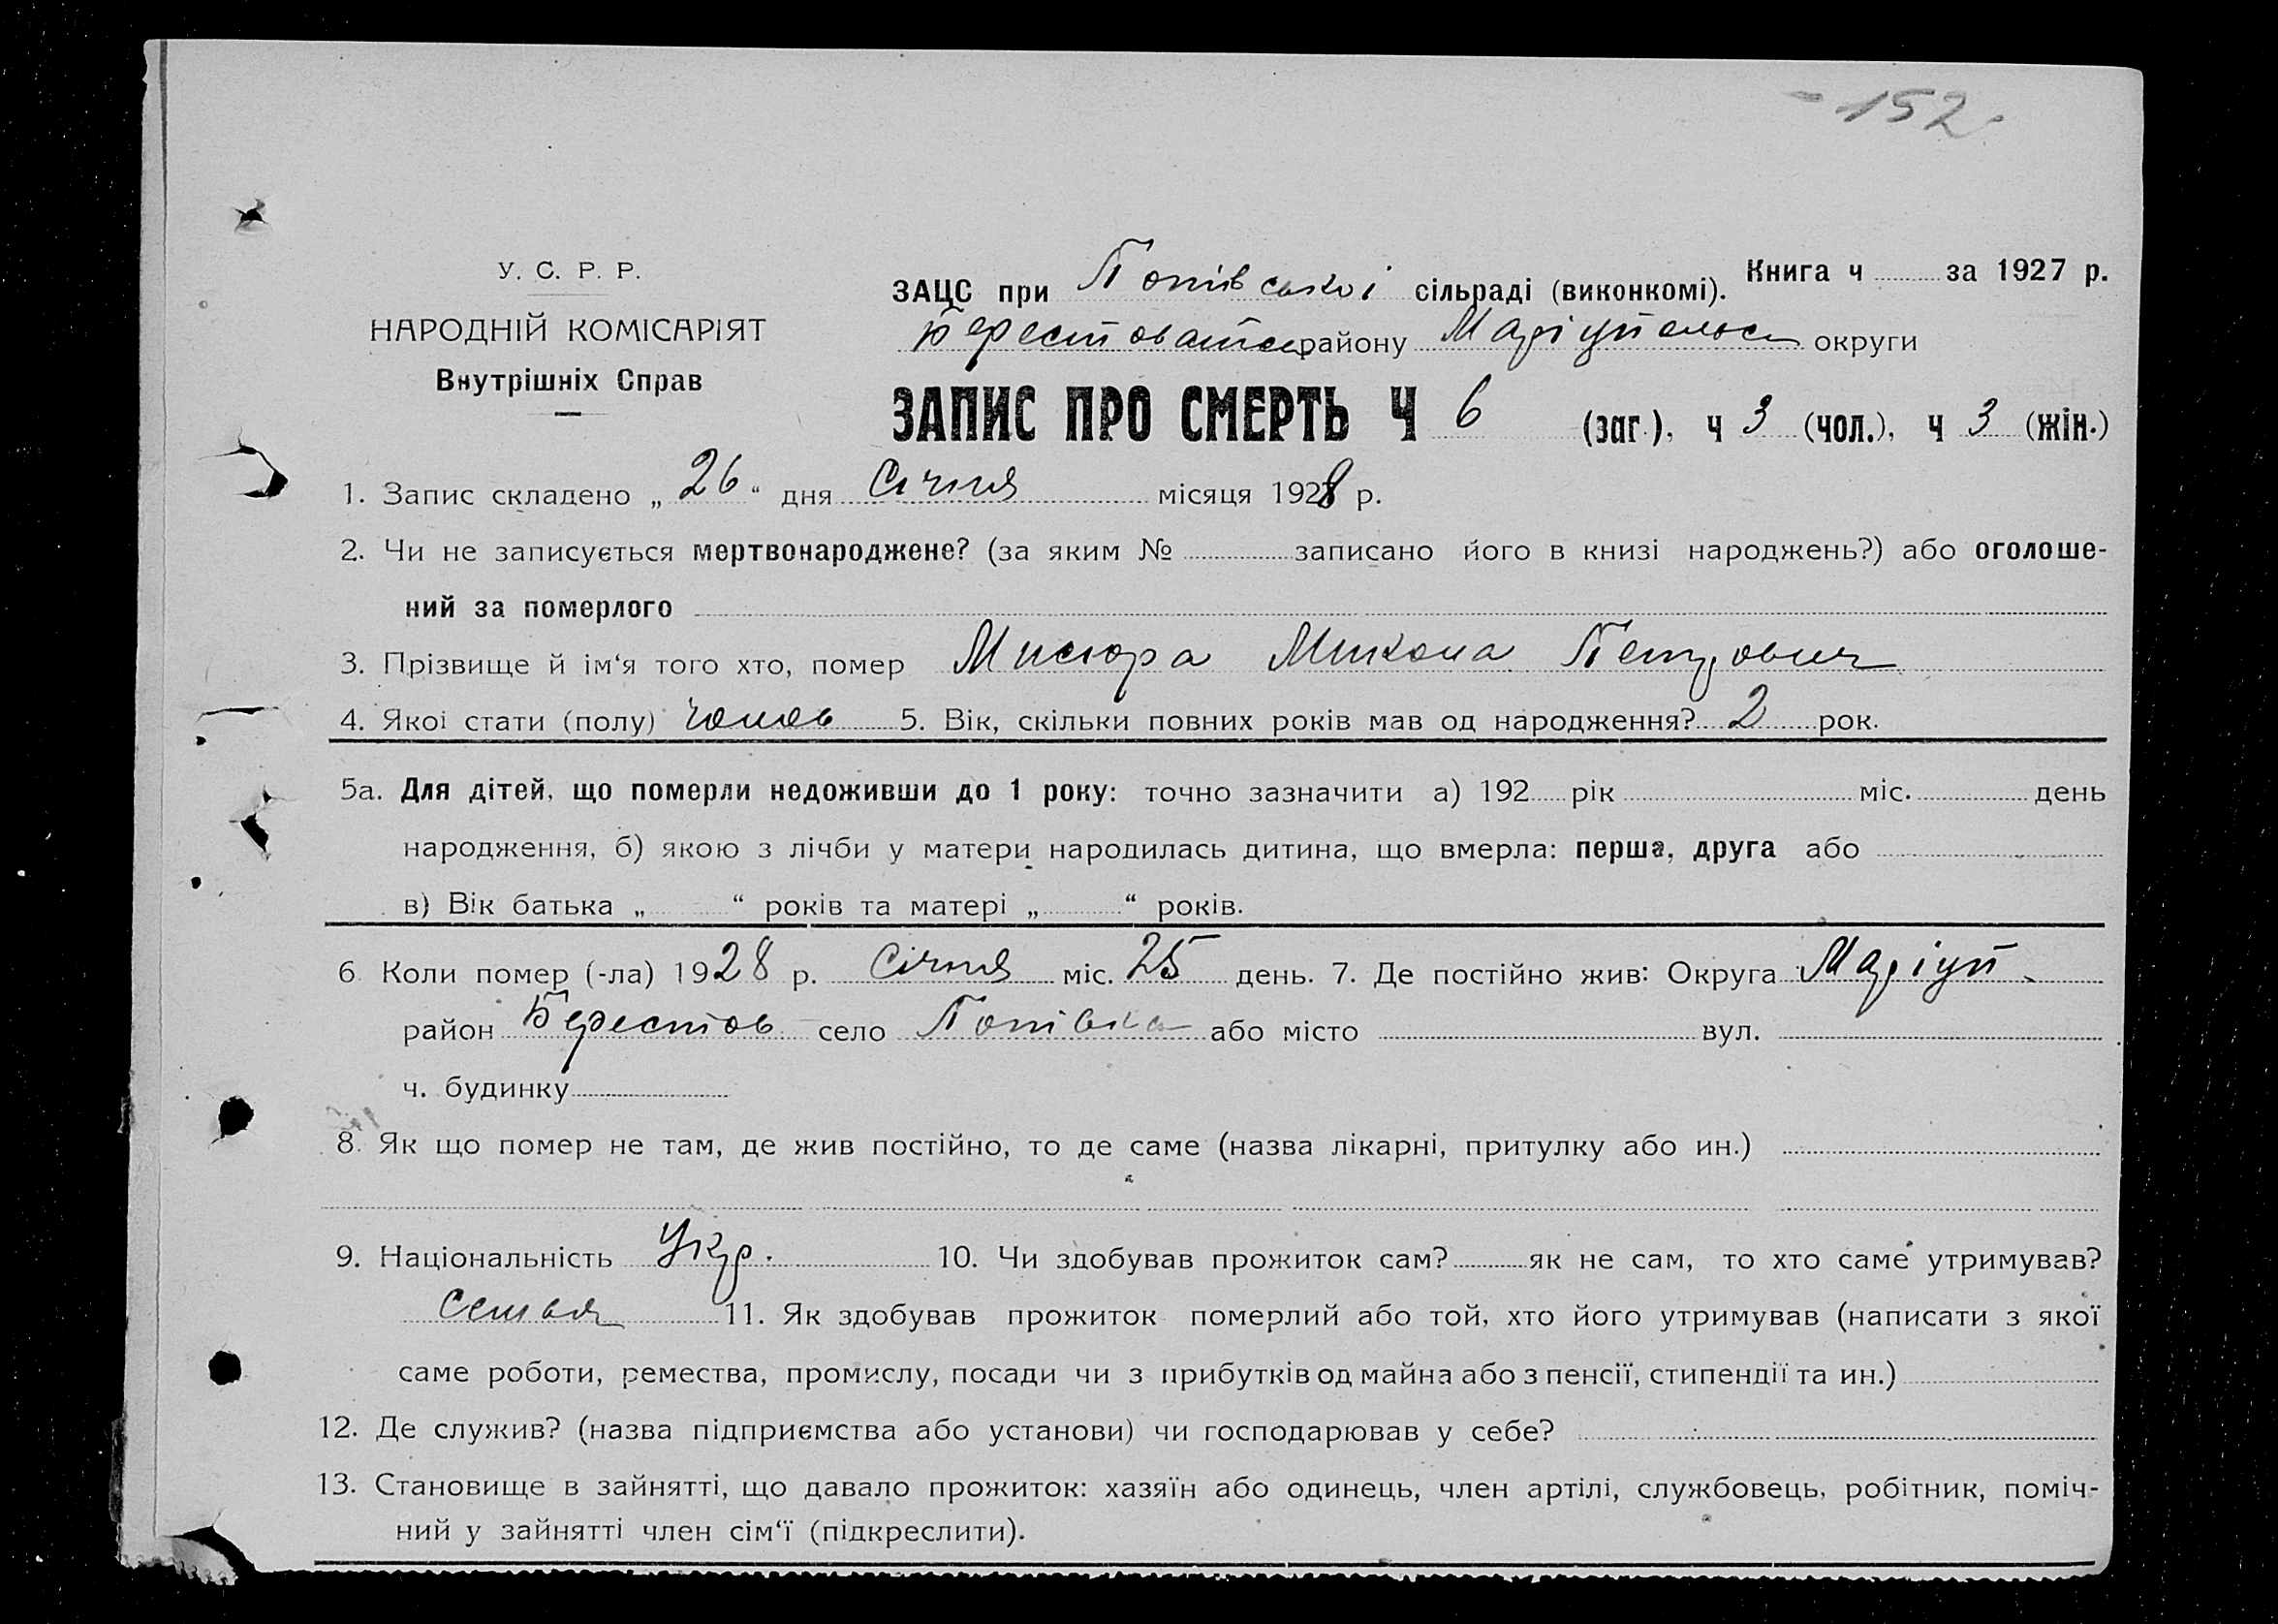 152
У. С. Р. Р.
НАРОДНІЙ КОМІСАРІЯТ
Внутрішніх Справ
ЗАЦС при Попівської сільраді (виконкомі). Книга ч за 1927 р.
району Маріупольськ округи
ЗАПИС ПРО СМЕРТЬ Ч 6 (заг.), ч 3 (чол.), ч 3 (жін.)
1. Запис складено „26“ дня Січня місяця 1928 р.
2. Чи не записується мертвонароджене? (за яким № записано його в книзі народжень?) або оголоше-
ний за померлого
3. Прізвище й ім‘я того хто, помер Мисюра Микола Петрович
4. Якоі стати (полу) чолов 5. Вік, скільки повних років мав од народження? 2 рок.
5а. Для дітей, що померли недоживши до 1 року: точно зазначити а) 192 рік міс. день
народження, б) якою з лічби у матери народилась дитина, що вмерла: перша, друга або
в) Вік батька „ “ років та матері „ “ років.
6 Коли помер (-ла) 1928 р. Січня міс. 25 день. 7. Де постійно жив: Округа Маріуп
район Берестов село Попівка або місто вул.
ч. будинку
8. Як що помер не там, де жив постійно, то де саме (назва лікарні, притулку або ин.)
9. Національність Укр. 10. Чи здобував прожиток сам? як не сам, то хто саме утримував?
Семья 11. Як здобував прожиток померлий або той, хто його утримував (написати з якої
саме роботи, ремества, промислу, посади чи з прибутків од майна або з пенсії, стипендії та ин.)
12. Де служив? (назва підприємства або установи) чи господарював у себе?
13. Становище в зайнятті, що давало прожиток: хазяїн або одинець, член артілі, службовець, робітник, поміч-
ний у зайнятті член сім‘ї (підкреслити).